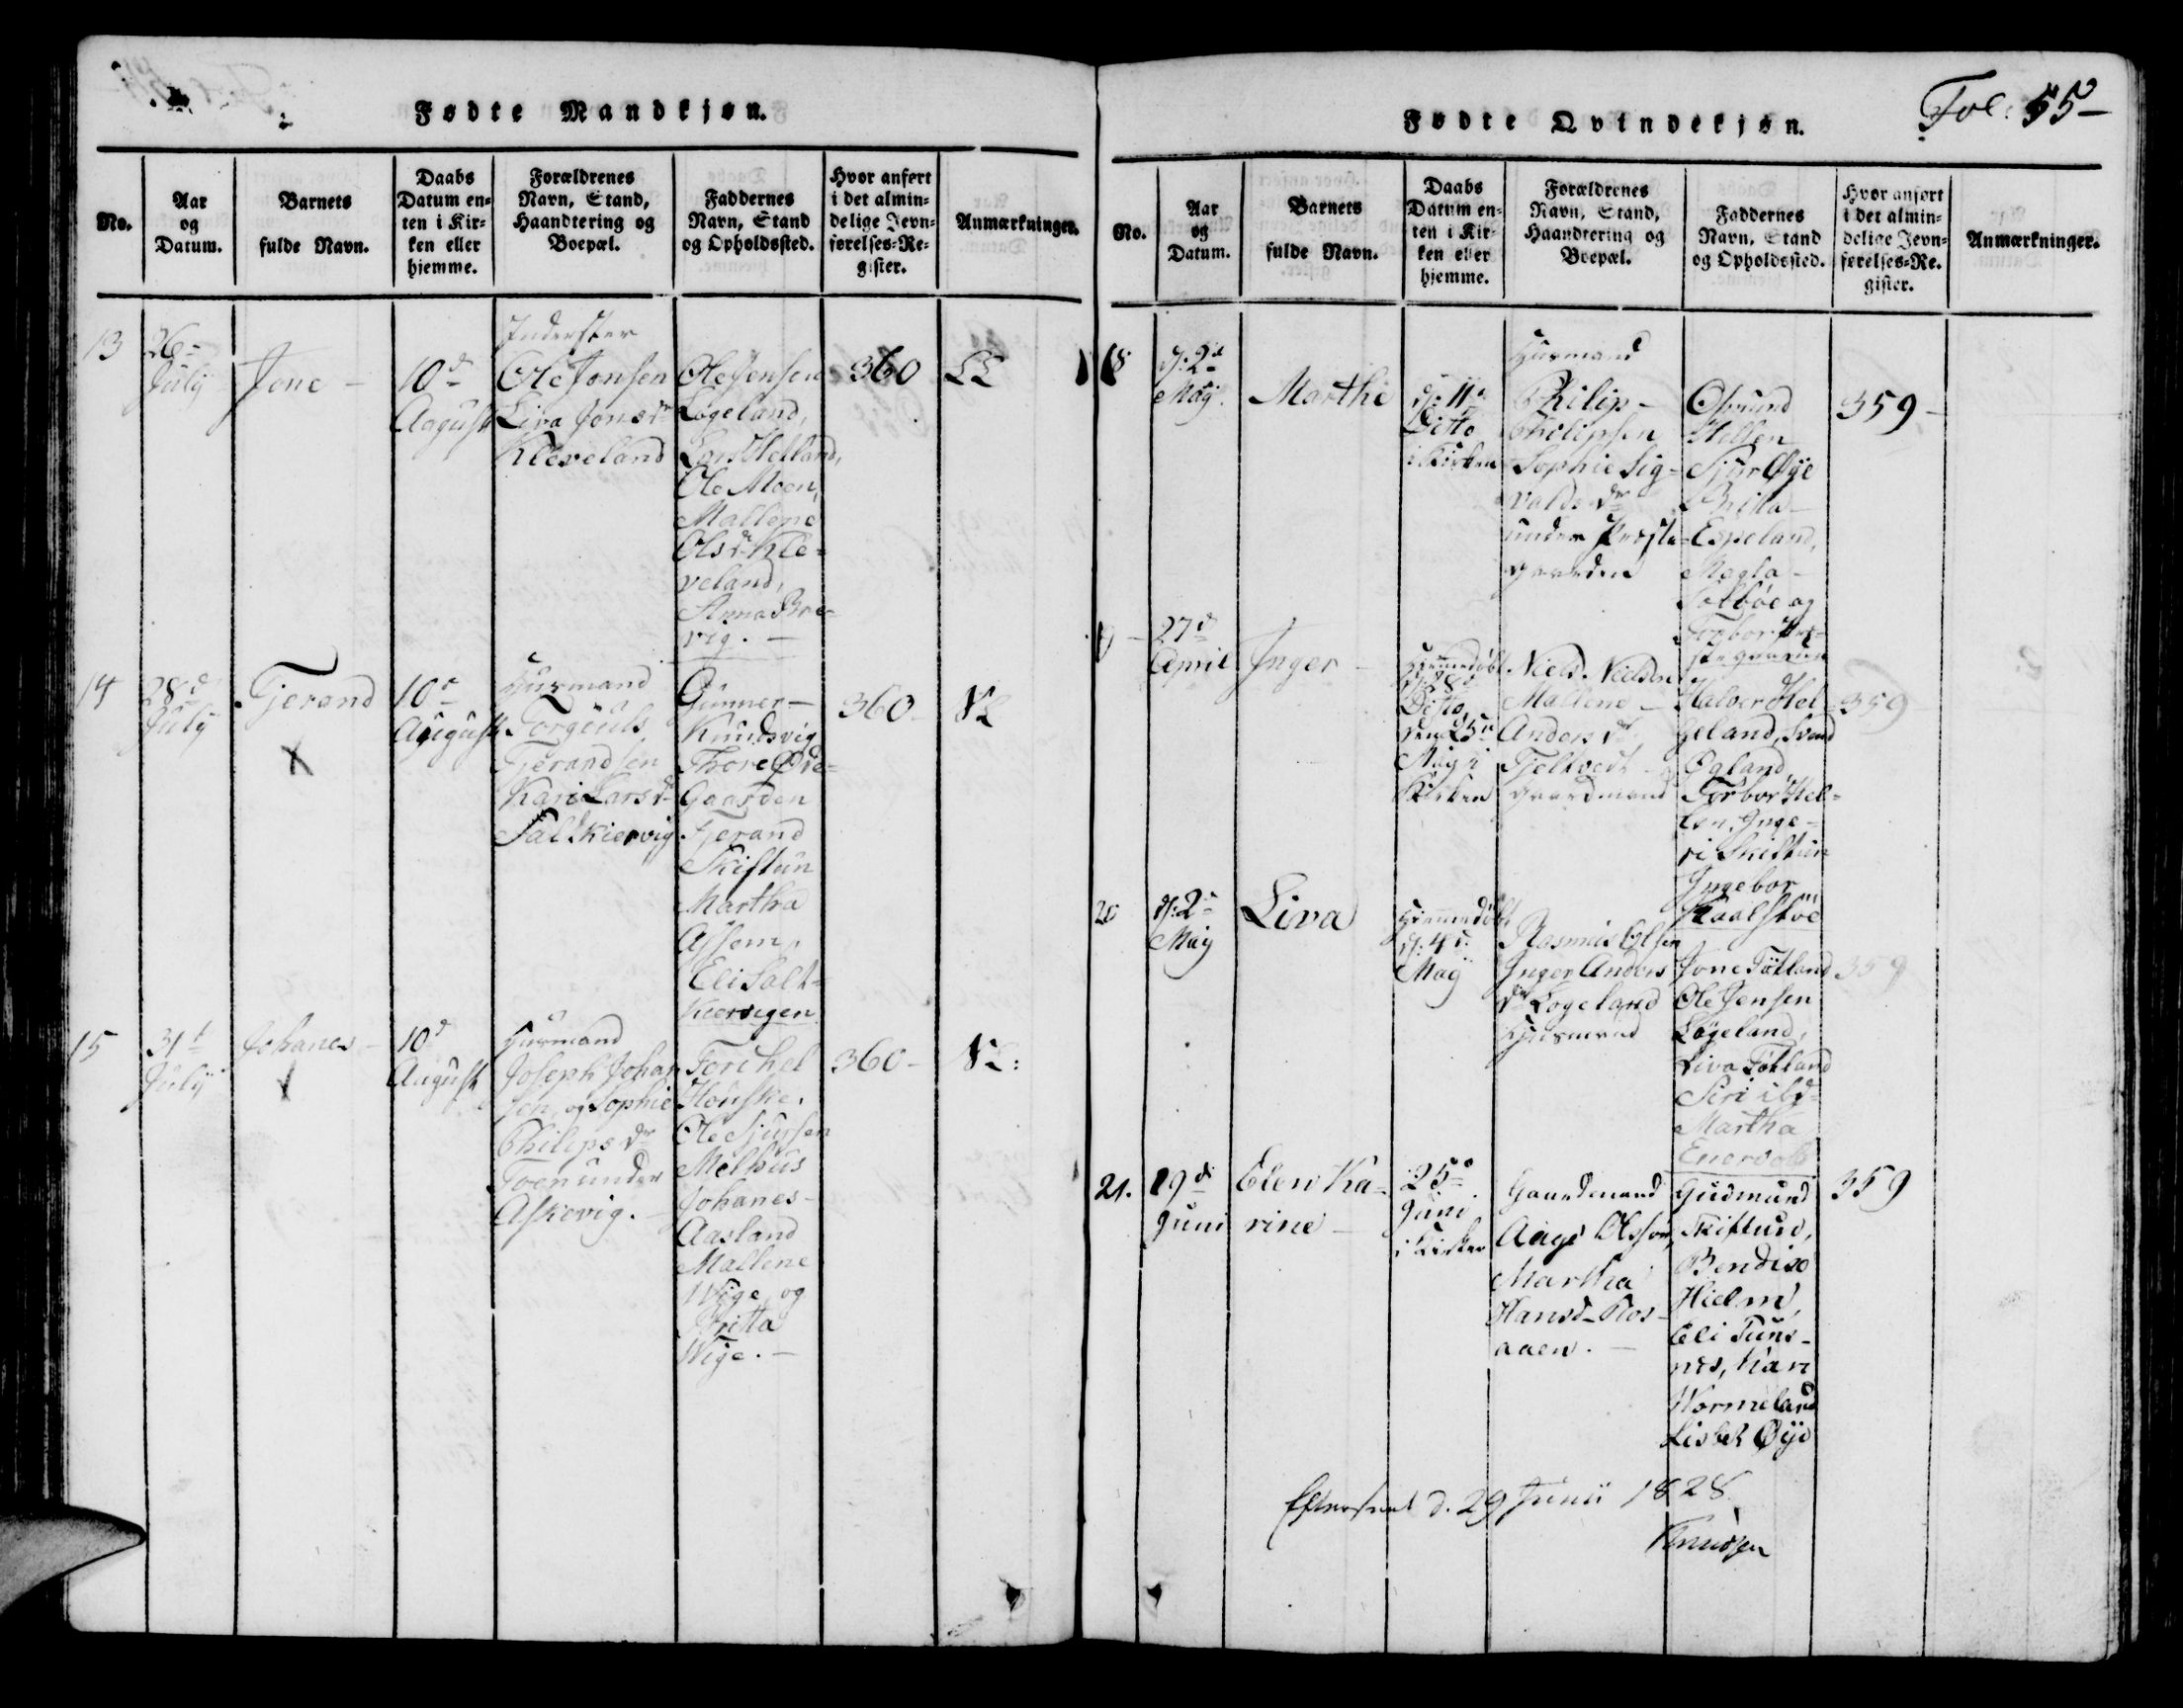 Fødte Mandkjøn.
No.
Aar
og
Datum.
Barnets
fulde Navn.
Daabs
Datum en-
ten i Kir-
ken eller
hjemme.
Forældrenes
Navn, Stand,
Haandtering og
Boepæl.
Faddernes
Navn, Stand
og Opholdssted.
Hvor anført
i det almin-
delige Jevn-
førelses-Re-
gister.
Anmærkninger.
13
26
July
Jone
10d
August
Inderster
Ole Jonsen
Liva Jonsdr
Kleveland
Ole Jensen
Løgeland,
Lars Helland,
Ole Moen,
Mallene
Olsdr Kle-
veland,
Anna Bre-
vig.
360
14
28d
July
Tjerand
10d
August
Huusmand
Torgiuls
Tjerandsen
Kari Larsdr
Saltkiervig
Gunner
Knudsvig
Thore Øve-
Gaarden
Tjerand
Skiftun
Martha
Assem,
Eli Salt-
kiervigen
360
15
31t
July
Johanes
10d
August
Huusmand
Joseph Johan
sen, og Sophie
Philipsdr
Toen under
Askevig.
Torchel
Houske.
Ole Sjursen
Melhus
Johanes
Aasland
Mallene
Wige og
Britta
Wige.
360
Fødte Qvindekjøn.
Fol: 55
No.
Aar
og
Datum.
Barnets
fulde Navn.
Daabs
Datum en-
ten i Kir-
ken eller
hjemme.
Forældrenes
Navn, Stand,
Haandtering og
Boepæl.
Faddernes
Navn, Stand
og Opholdssted.
Hvor anført
i det almin-
delige Jevn-
førelses-Re-
gister.
Anmærkninger.
18
d: 2d
May
Marthe
d: 11d
Ditto
i Kirken
Huusmand
Philip
Philipsen
Sophie Sig-
valdsdr
under Præste-
gaarden
Osmund
Hellen
Sjur Øye
Brita
Espeland,
Magla
Solbøe og
Torbor Præ-
stegaarden
359
27d
April
Inger
Hiemmedøbt
d 28d
Ditto,
den 25d
May i
Kirken
Niels Nielsen
Mallene
Andersdr
Tjeltvedt
Gaardmand
Halvor Hel-
geland, Svend
Øgland,
Torbor Hel-
len, Inge-
ri Skiftun
Ingebor
359
20
d: 2d
May
Liva
Hiemmedøbt
d: 4d
May
Rasmus Olsen
Inger Anders
dr Løgeland
Huusmand
Jone Tøtland
Ole Jensen
Løgeland,
Liva Tøtland
Siri ibd
Martha
359
21.
19d
Juni
Elen Ka-
rine
25d
Juni
i Kirken
Gaardmand
Aage Olsson,
Martha
Hansd. Ros-
aaen.
Gudmund
Skiftun,
Bendix
Hielm,
Eli Tuns-
nes, Kari
Wormeland
Lisbet Øye
359
Efterseet d. 29 Junii 1828
Knudsen